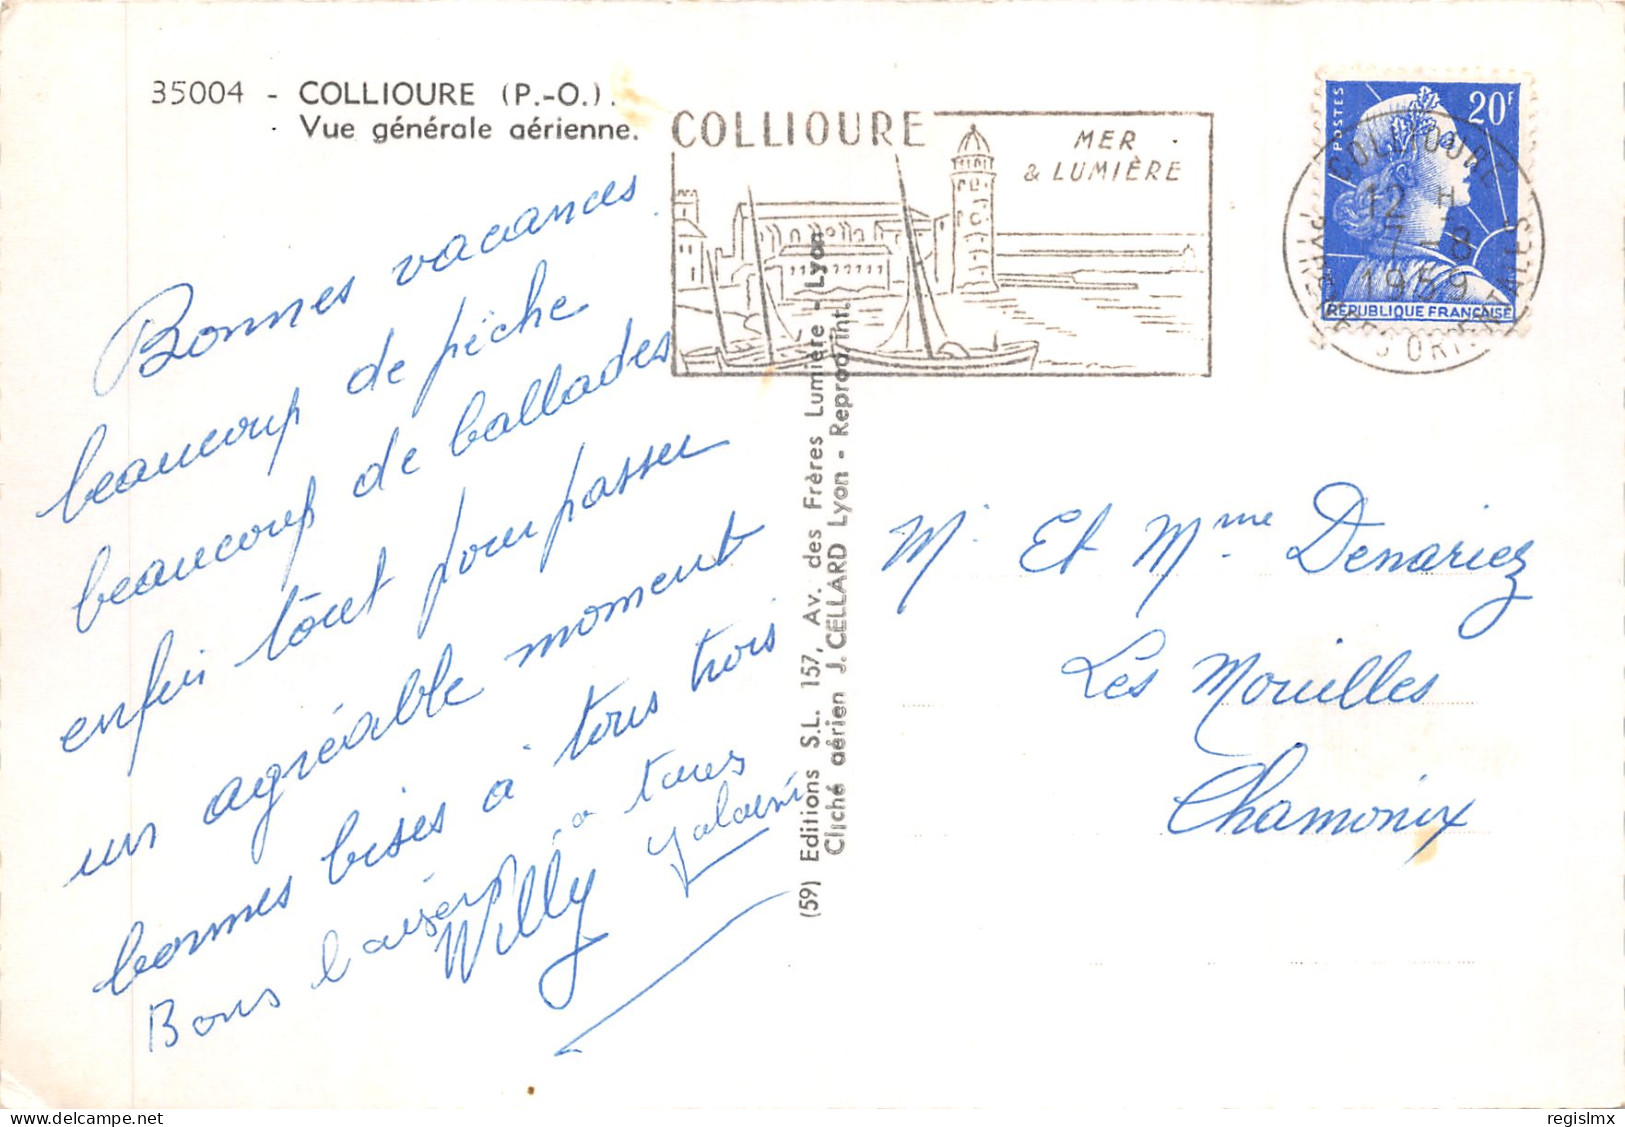 35004 - COLLIOURE (P.-O.).
Vue générale aérienne.
COLLIOURE
MER
& LUMIÈRE
POSTES
20F
RÉPUBLIQUE FRANÇAISE
COLLIOURE
12 H
7 - 8
1959
PYRÉNÉES ORIENTALES
Bonnes vacances
beaucoup de pêche
beaucoup de ballades
enfin tout pour passer
un agréable moment
bonnes bises à tous trois
Willy
Bons baisers à tous
(59) Editions S.L. 157, Av. des Frères Lumière - Lyon
Cliché aérien J. CELLARD Lyon - Reprod. int.
Mr Et Mme Denariez
Les Mouilles
Chamonix
www.delcampe.net
regislmx